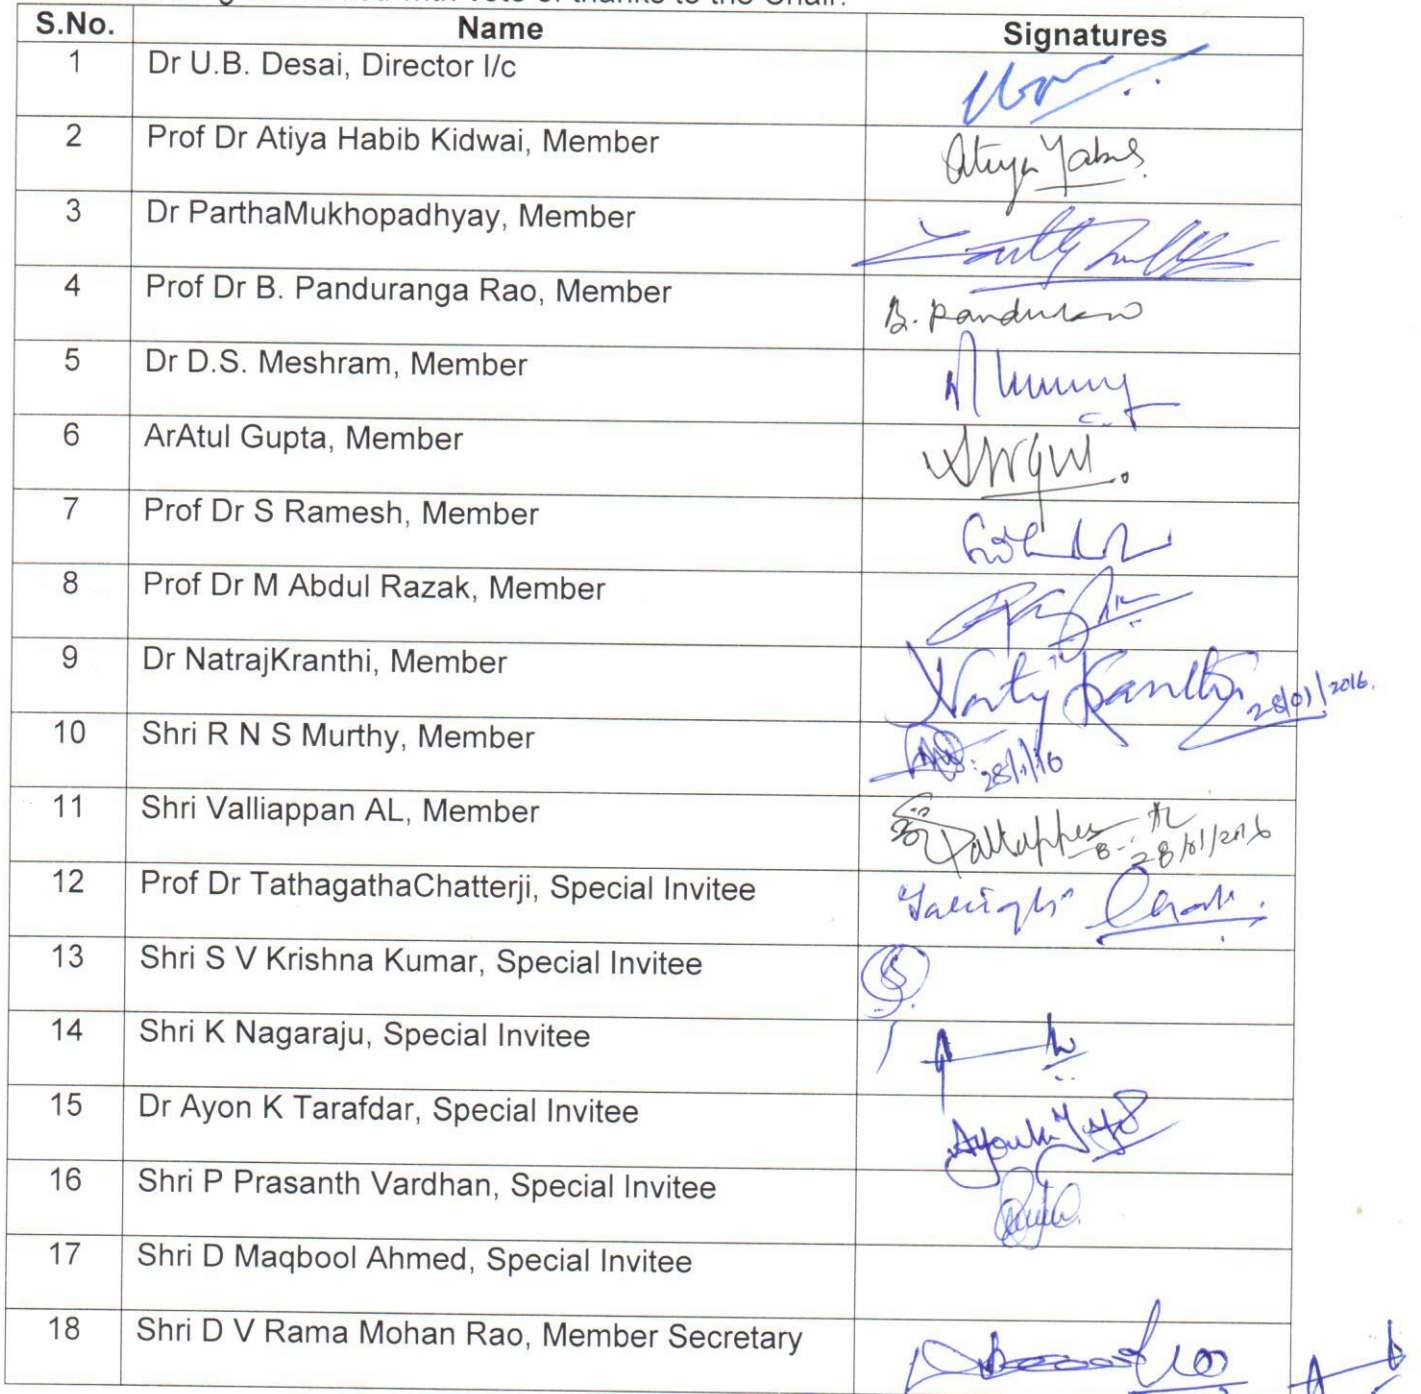 with vote of thanks to the Chair.
S.No. Name Signatures
1 Dr U.B. Desai, Director I/c
2 Prof Dr Atiya Habib Kidwai, Member Atiya
3 Dr ParthaMukhopadhyay, Member
4 Prof Dr B. Panduranga Rao, Member B.
5 Dr D.S. Meshram, Member
6 ArAtul Gupta, Member
7 Prof Dr S Ramesh, Member
8 Prof Dr M Abdul Razak, Member
9 Dr NatrajKranthi, Member 28/01/2016.
10 Shri R N S Murthy, Member 28/1/16
11 Shri Valliappan AL, Member 28/01/2016
12 Prof Dr TathagathaChatterji, Special Invitee
13 Shri S V Krishna Kumar, Special Invitee
14 Shri K Nagaraju, Special Invitee
15 Dr Ayon K Tarafdar, Special Invitee
16 Shri P Prasanth Vardhan, Special Invitee
17 Shri D Maqbool Ahmed, Special Invitee
18 Shri D V Rama Mohan Rao, Member Secretary